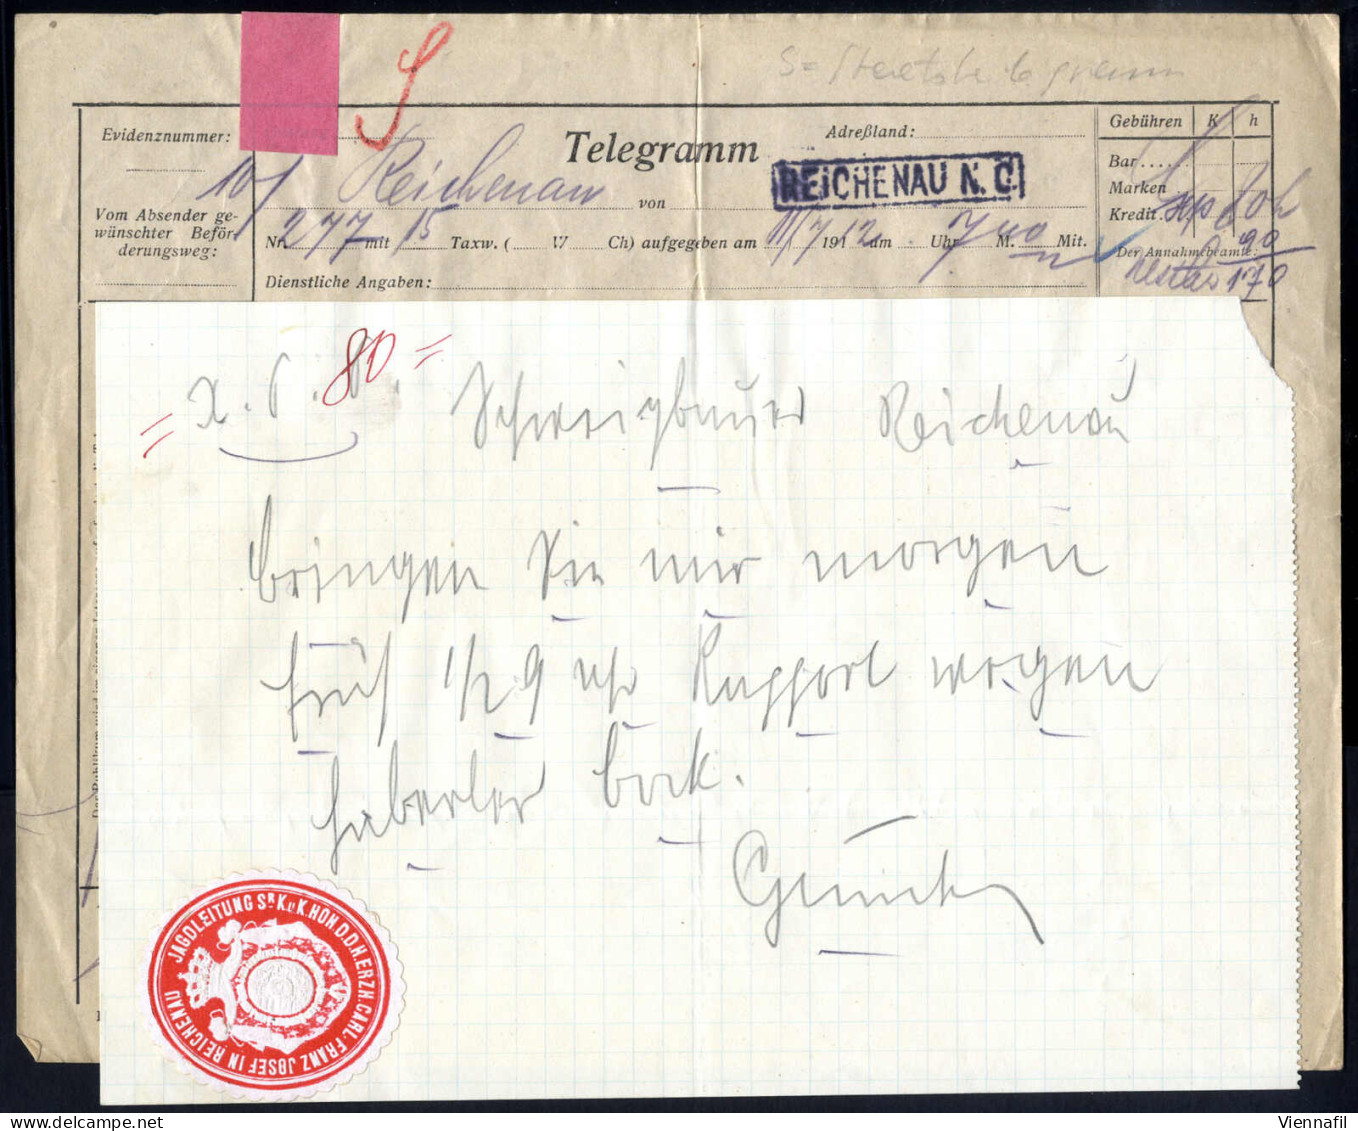 S= Staatstelegramm
S
Evidenznummer:
Telegramm
Adreßland:
Gebühren K h
Bar
Marken
Kredit. 80 h
10/ Reichenau von REICHENAU N. Ö.
Vom Absender ge-
wünschter Beför-
derungsweg:
Nr. 277 mit 15 Taxw. ( W Ch) aufgegeben am 11/7 1912 um Uhr 7 40 M. Mit.
Der Annahmebeamte: 90
170
Dienstliche Angaben:
= X. P. 80 = Schweigbauer Reichenau
bringen Sie mir morgen
früh 1/2 9 uhr Rapport wegen
haberler bock.
JAGDLEITUNG SR K.u.K. HOH. D. D. H. ERZH. CARL-FRANZ JOSEF IN REICHENAU
Viennafil